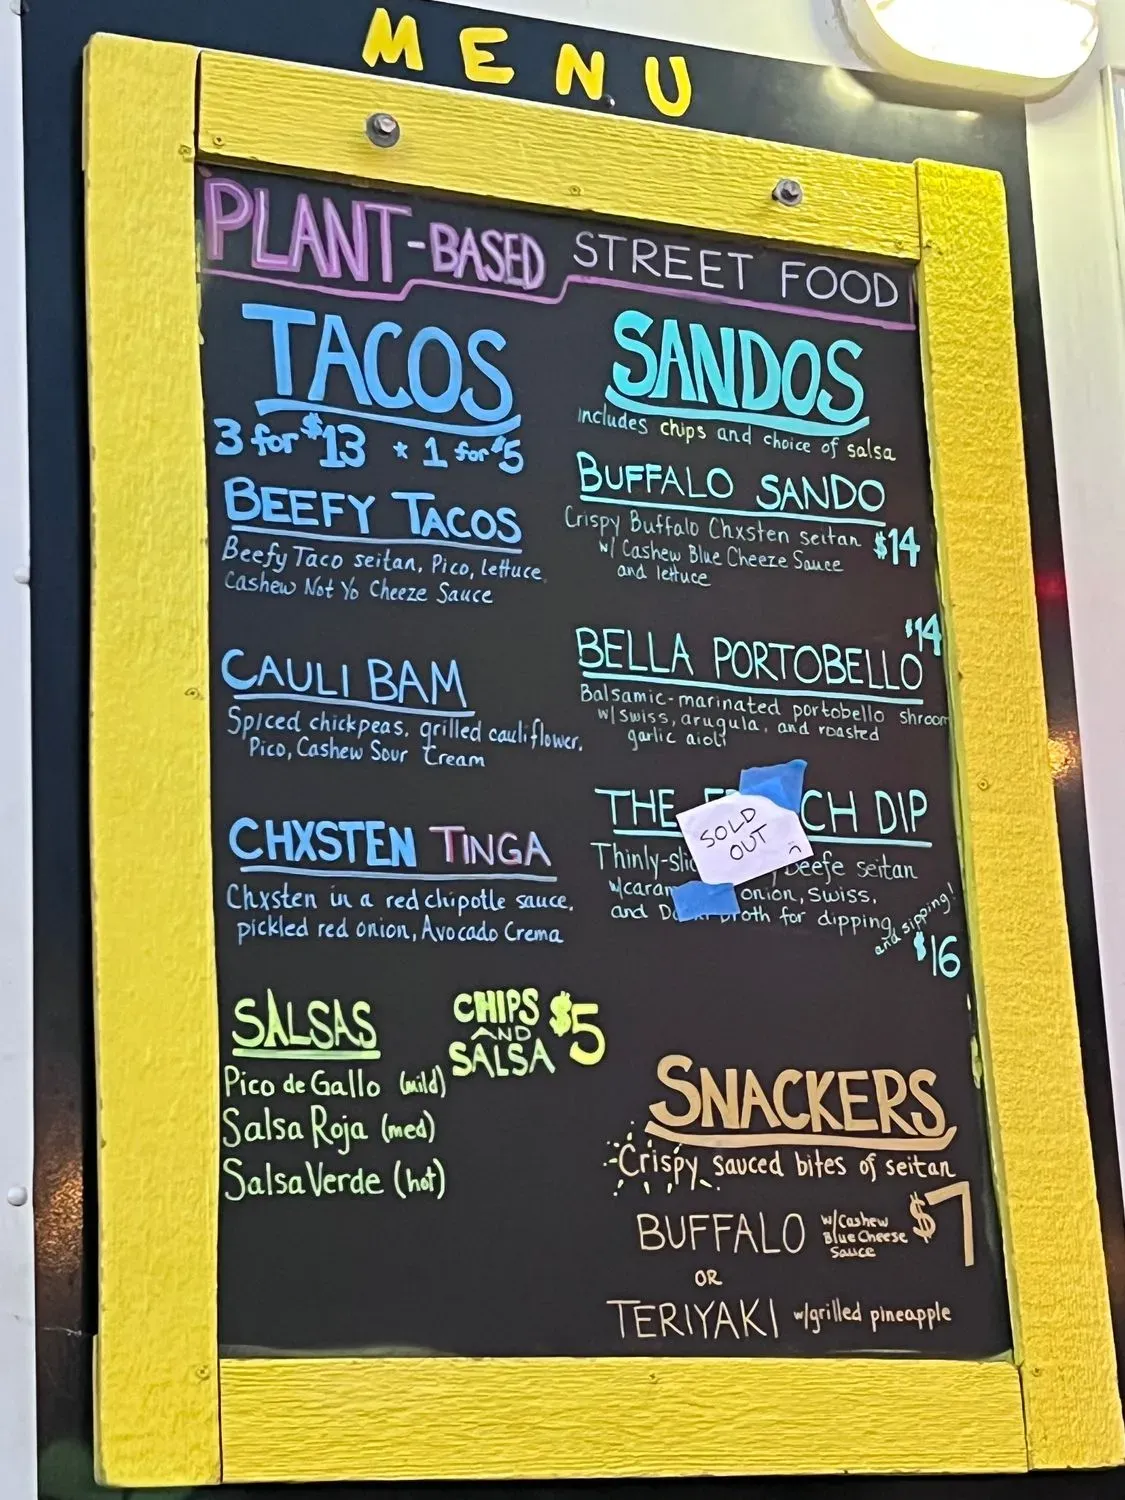 MENU
PLANT-BASED STREET FOOD
TACOS
3 for $13 * 1 for $5
BEEFY TACOS
Beefy Taco seitan, Pico, lettuce,
Cashew Not Yo Cheeze Sauce
CAULI BAM
Spiced chickpeas, grilled cauliflower,
Pico, Cashew Sour Cream
CHXSTEN TINGA
Chxsten in a red chipotle sauce,
pickled red onion, Avocado Crema
SALSAS
Pico de Gallo (mild)
Salsa Roja (med)
Salsa Verde (hot)
CHIPS
AND
SALSA
$5
SANDOS
includes chips and choice of salsa
BUFFALO SANDO
Crispy Buffalo Chxsten seitan
w/ Cashew Blue Cheeze Sauce
and lettuce
$14
$14
BELLA PORTOBELLO
Balsamic-marinated portobello shroom
w/swiss, arugula, and roasted
garlic aioli
THE CH DIP
SOLD
OUT
Thinly-slic beefe seitan
w/caram onion, swiss,
and broth for dipping
and sipping!
$16
SNACKERS
Crispy, sauced bites of seitan
BUFFALO
w/Cashew
Blue Cheese
Sauce
$7
OR
TERIYAKI w/grilled pineapple